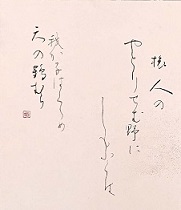 旅人の
やとりせむ野に
しもふらは
我か子はくゝめ
天の鶴むら